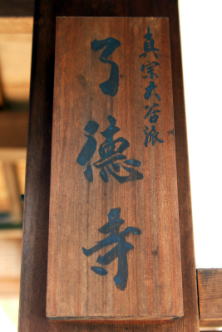 真宗大谷派
了徳寺